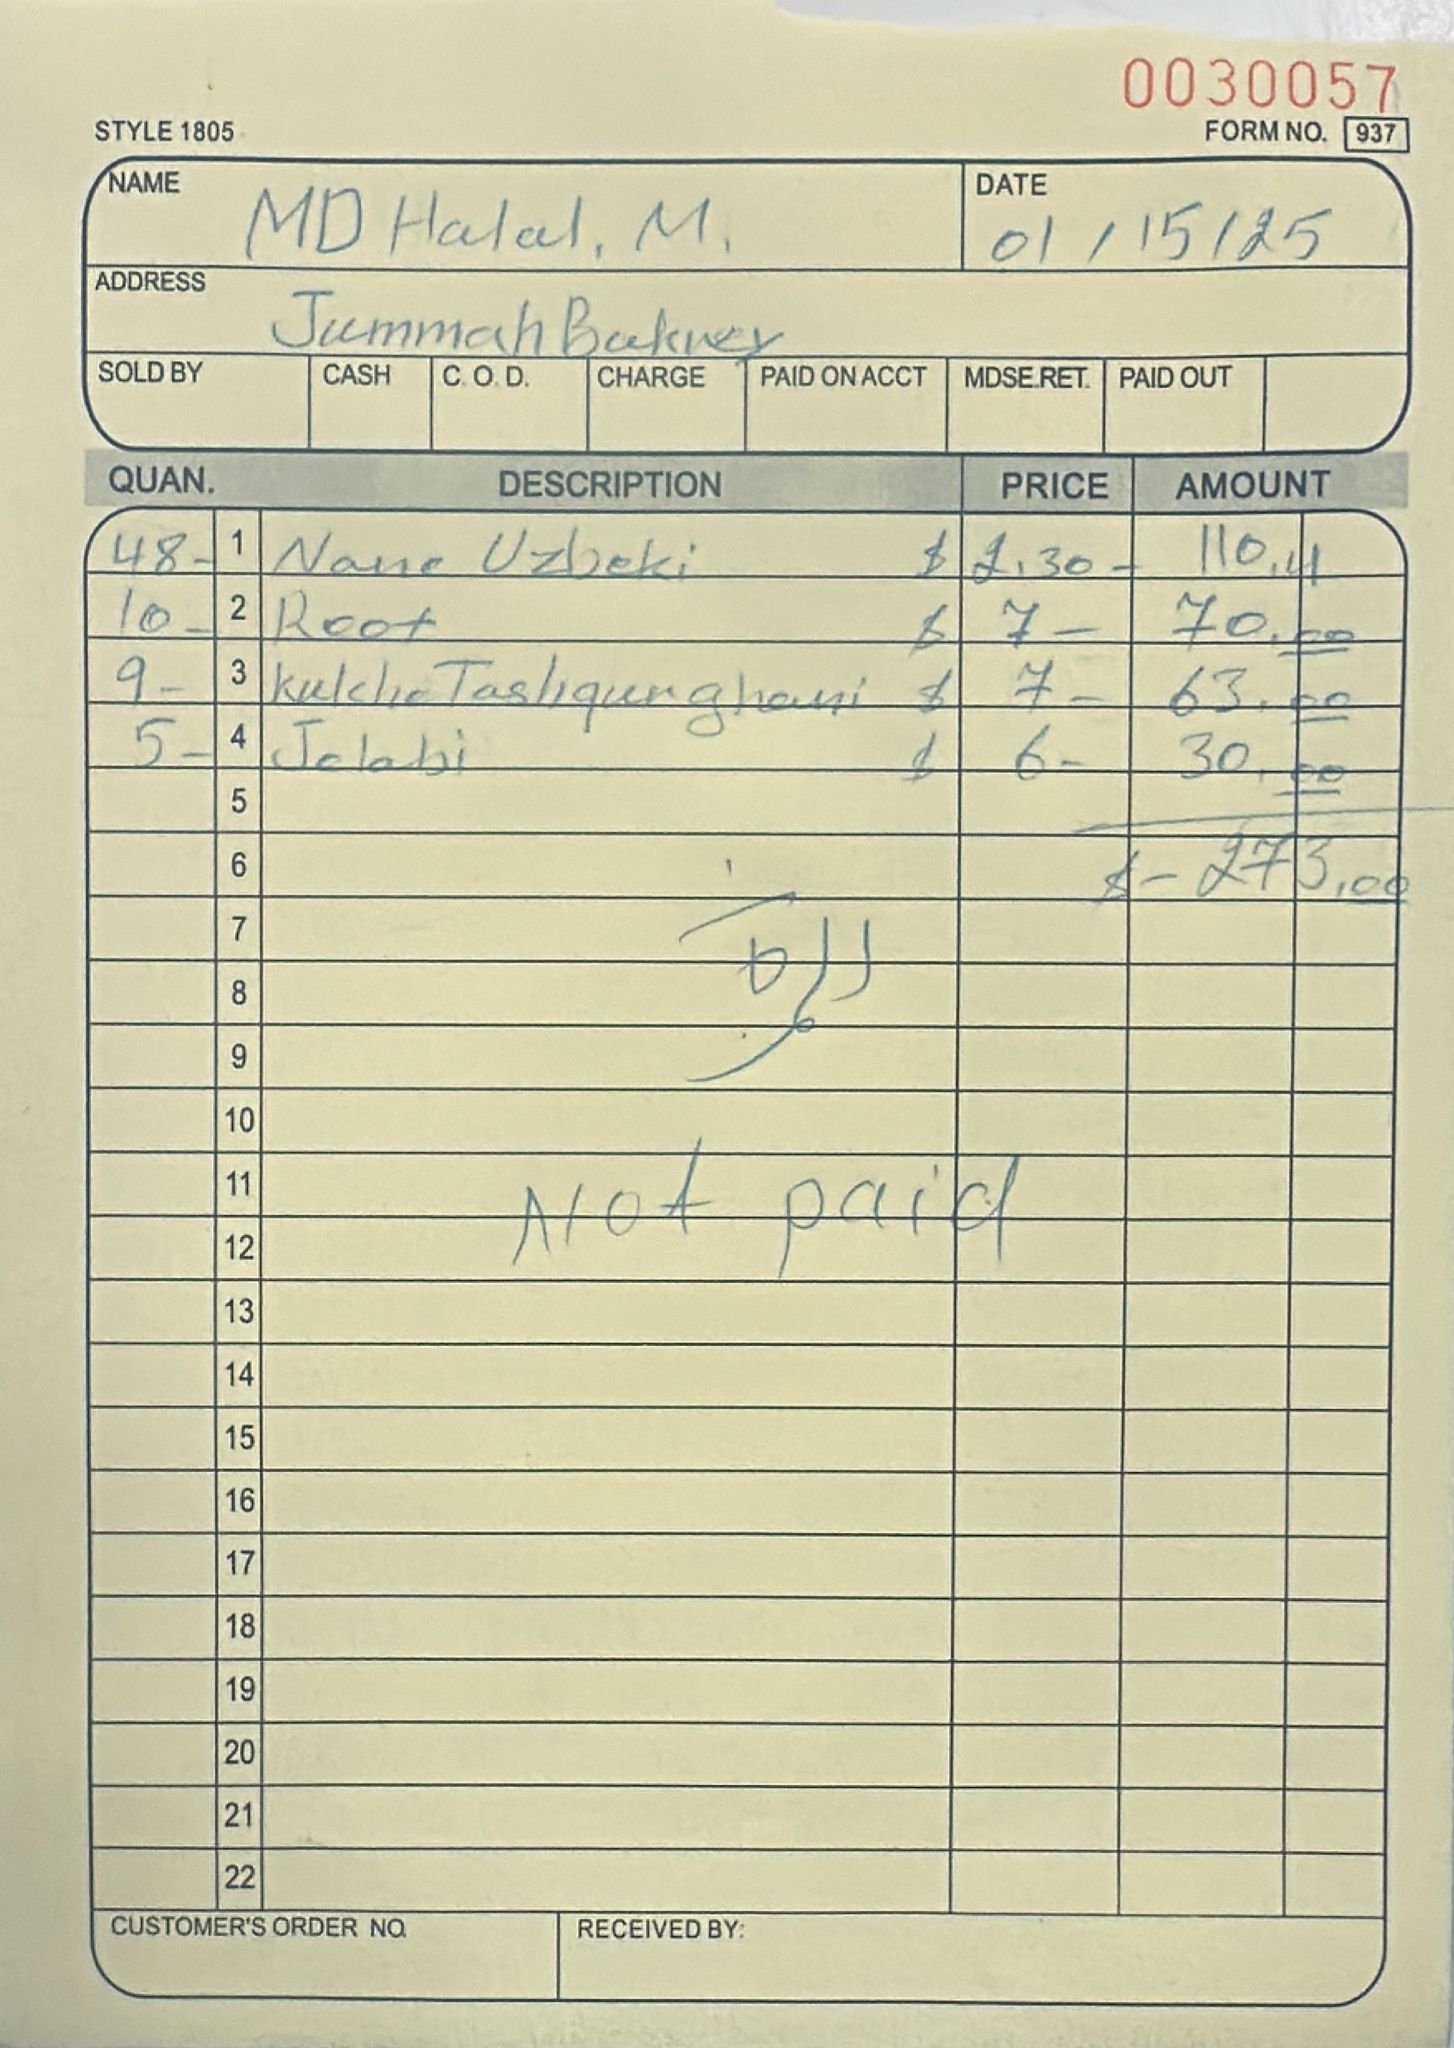 0030057
STYLE 1805
FORM NO. 937
NAME MD Halal, M.
DATE 01/15/25
ADDRESS Jummah Bakrey
SOLD BY CASH C.O.D. CHARGE PAID ON ACCT MDSE.RET. PAID OUT
QUAN. DESCRIPTION PRICE AMOUNT
48- 1 Nane Uzbeki $ 2.30- 110.4
10- 2 Root $ 7- 70.00
9- 3 Kulche Tashqurghani $ 7- 63.00
5- 4 Jelabi $ 6- 30.00
5
6 $- 273.00
7
8
9
10
11
Not paid
12
13
14
15
16
17
18
19
20
21
22
CUSTOMER'S ORDER NO. RECEIVED BY: